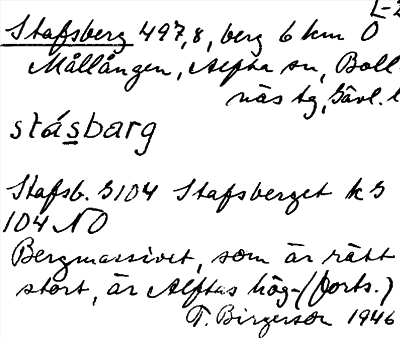 L-2
Stafsberg 497,8, berg 6 km O
Mållången, Alfta sn, Boll-
näs tg, Gävl. l
stásbarg
Stafsb. G104 Stafsberget k G
104 NO
Bergmassivet, som är rätt
stort, är Alftas hög- (forts.)
T. Birgerson 1946